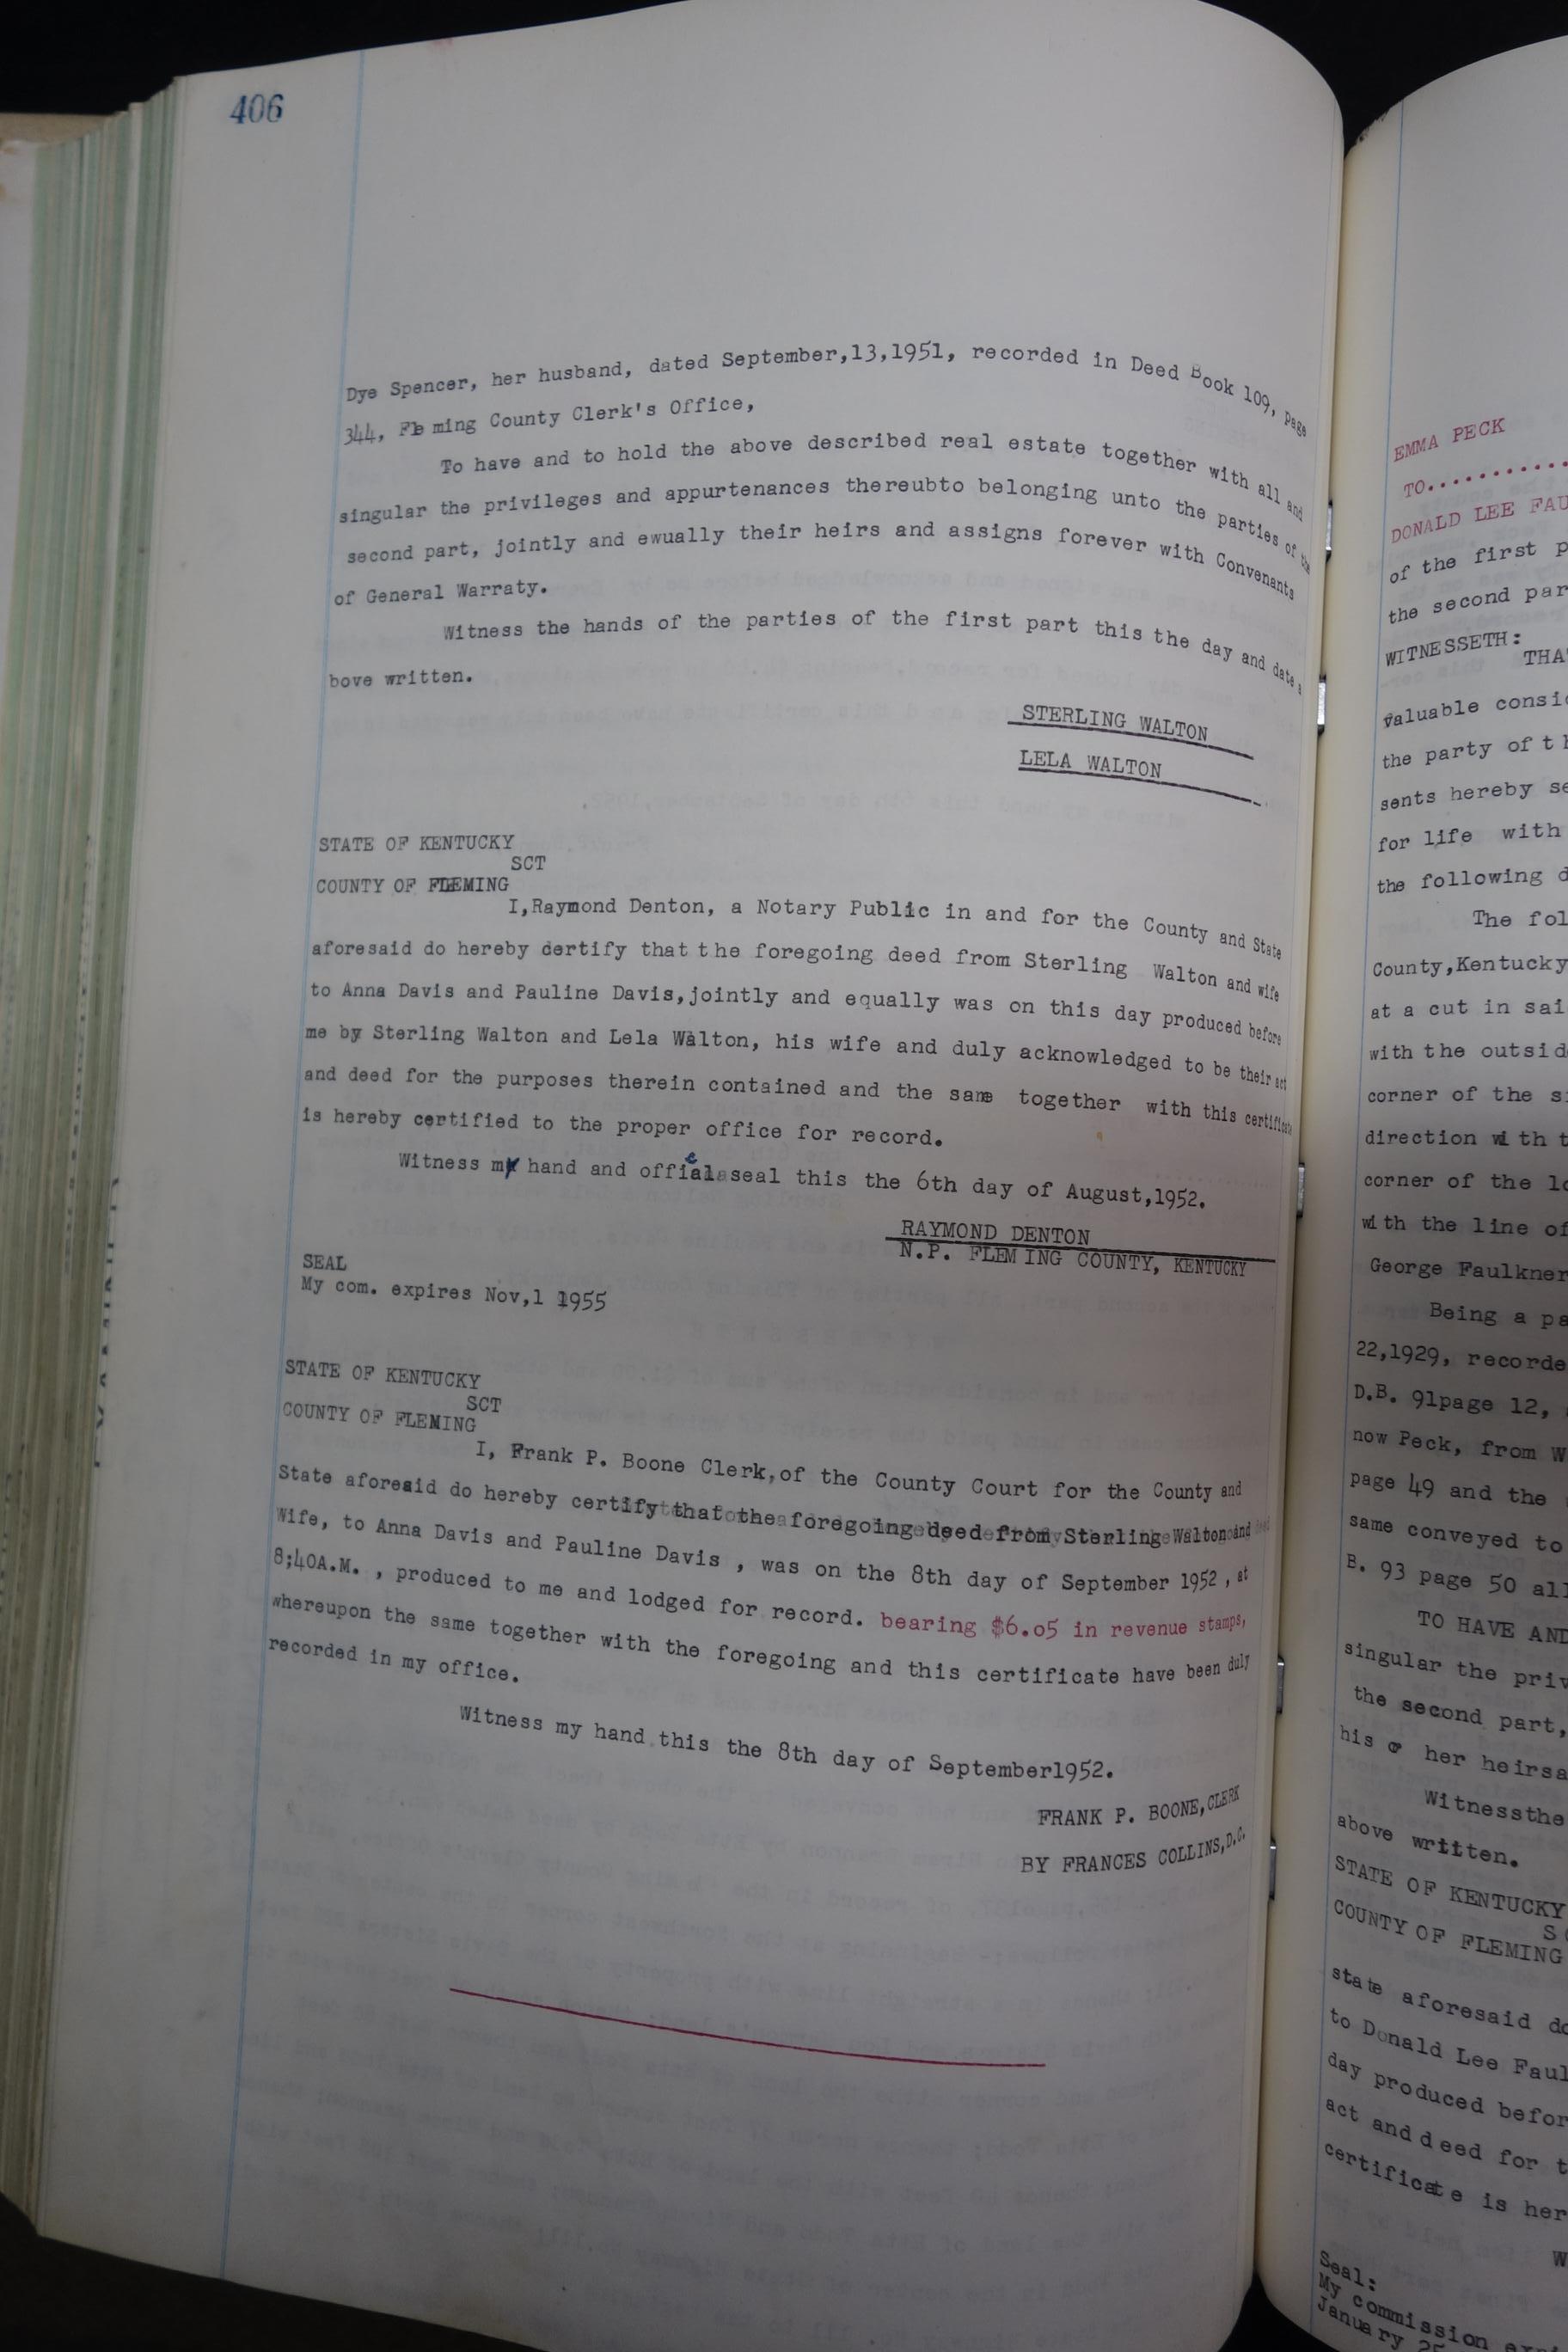 406
Dye Spencer, her husband, dated September,13,1951, recorded in Deed Book 109, page
344, Fleming County Clerk's Office,
To have and to hold the above described real estate together with all and
singular the privileges and appurtenances thereubto belonging unto the parties of the
second part, jointly and ewually their heirs and assigns forever with Convenants
of General Warraty.
Witness the hands of the parties of the first part this the day and date a
bove written.
STERLING WALTON
LELA WALTON
STATE OF KENTUCKY
SCT
COUNTY OF FLEMING
I,Raymond Denton, a Notary Public in and for the County and State
aforesaid do hereby certify that the foregoing deed from Sterling Walton and wife
to Anna Davis and Pauline Davis,jointly and equally was on this day produced before
me by Sterling Walton and Lela Walton, his wife and duly acknowledged to be their act
and deed for the purposes therein contained and the same together with this certificate
is hereby certified to the proper office for record.
Witness my hand and offical seal this the 6th day of August,1952.
RAYMOND DENTON
N.P. FLEMING COUNTY, KENTUCKY
SEAL
My com. expires Nov,1 1955
STATE OF KENTUCKY
SCT
COUNTY OF FLEMING
I, Frank P. Boone Clerk,of the County Court for the County and
State aforesaid do hereby certify that the foregoing deed from Sterling Walton and
Wife, to Anna Davis and Pauline Davis , was on the 8th day of September 1952 , at
8;40A.M. , produced to me and lodged for record. bearing $6.05 in revenue stamps,
whereupon the same together with the foregoing and this certificate have been duly
recorded in my office.
Witness my hand this the 8th day of September1952.
FRANK P. BOONE,CLERK
BY FRANCES COLLINS,D.C.
EMMA PECK
TO..........
DONALD LEE FAU
of the first p
the second par
WITNESSETH:
THAT
valuable consid
the party of th
sents hereby se
for life with
the following d
The fol
County,Kentucky
at a cut in sai
with the outsid
corner of the s
direction with t
corner of the lo
with the line of
George Faulkner
Being a pa
22,1929, recorde
D.B. 91page 12,
now Peck, from W
page 49 and the
same conveyed to
B. 93 page 50 all
TO HAVE AND
singular the priv
the second part,
his or her heirsa
Witnessthe
above written.
STATE OF KENTUCKY
S
COUNTY OF FLEMING
state aforesaid do
to Donald Lee Faul
day produced befor
act and deed for t
certificate is her
W
Seal:
My commission exp
January 25